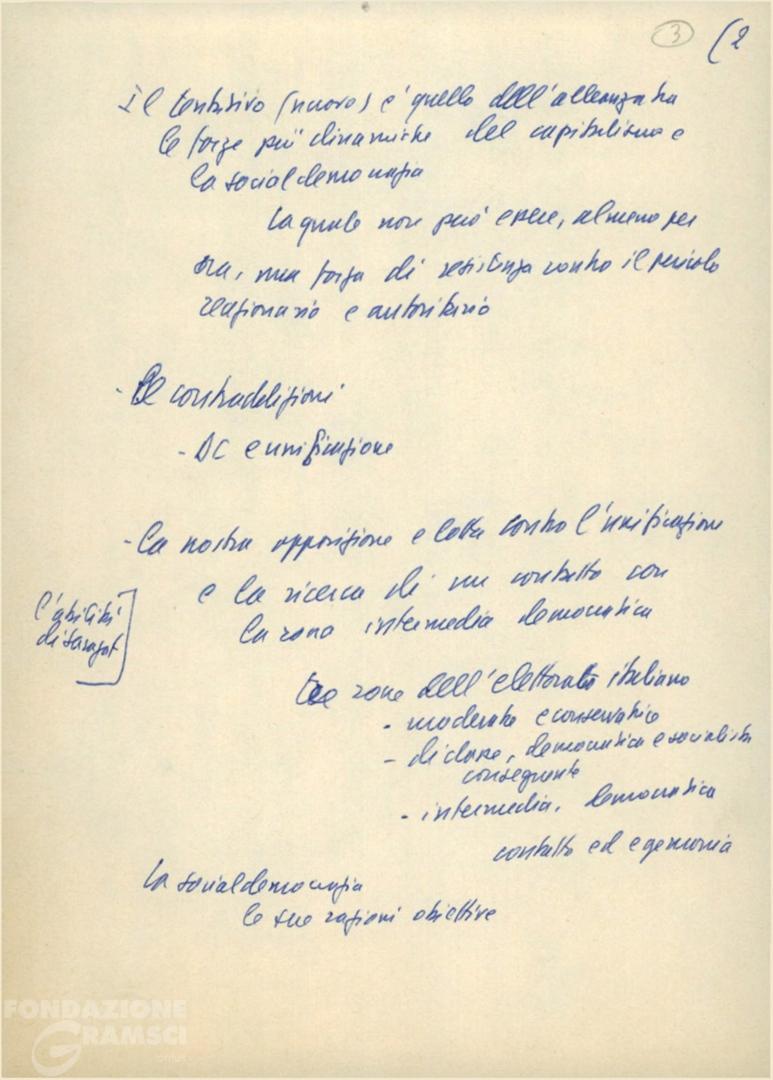 3 (2
Il tentativo (nuovo) è quello dell'alleanza tra
le forze più dinamiche del capitalismo e
la socialdemocrazia
la quale non può essere, almeno per
ora, una forza di resistenza contro il pericolo
reazionario e autoritario
- Le contraddizioni
- DC e unificazione
- la nostra opposizione e lotta contro l'unificazione
e la ricerca di un contatto con
la zona intermedia democratica
l'abilità
di Saragat
tre zone dell'elettorato italiano
- moderata e conservatrice
- di classe, democratica e socialista
conseguente
- intermedia, democratica
contatto ed egemonia
la socialdemocrazia
le sue ragioni obiettive
FONDAZIONE
GRAMSCI